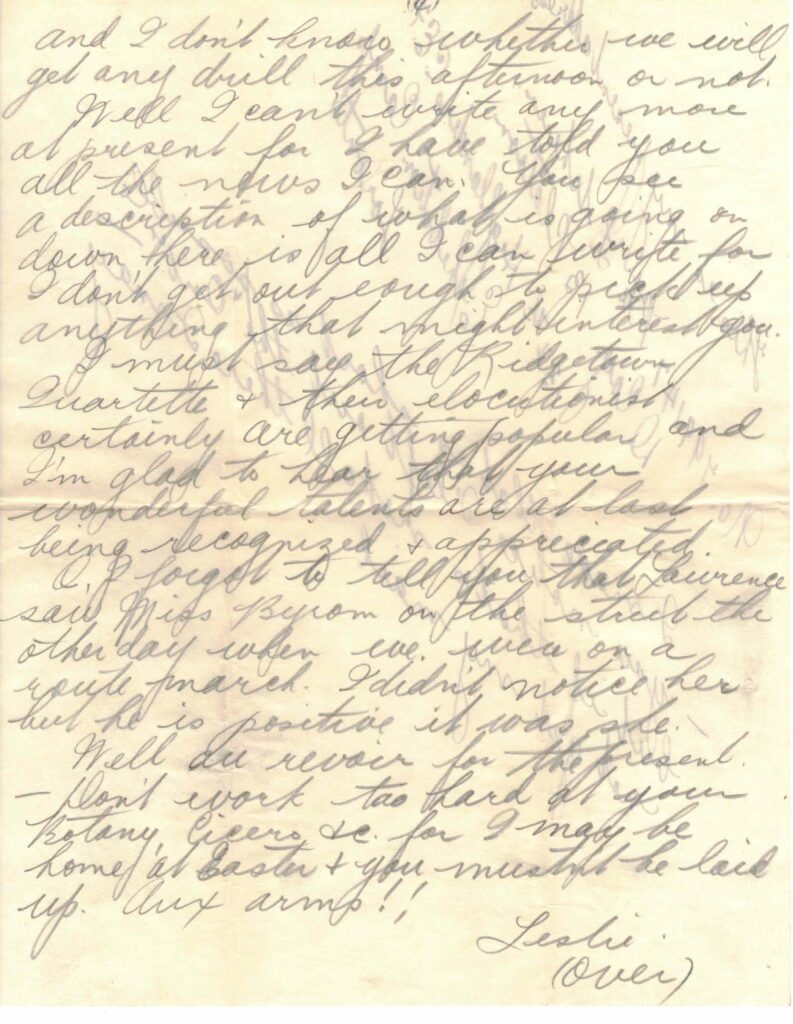 (4)
and I don't know whether we will
get any drill this afternoon or not.
Well I can't write any more
at present for I have told you
all the news I can. You see
a description of what is going on
down here is all I can write for
I don't get out eough to pick up
anything that might interest you.
I must say the Ridgetown
Quartette & their elocutionist
certainly are getting popular and
I'm glad to hear that your
wonderful talents are at last
being recognized & appreciated.
O, I forgot to tell you that Lawrence
saw Miss Byrom on the street the
other day when we were on a
route march. I didn't notice her
but he is positive it was she.
Well au revoir for the present.
– Don't work too hard at your
Botany, Cicero &c. for I may be
home at Easter & you mustn't be laid
up. Aux arms!!
Leslie.
(Over)